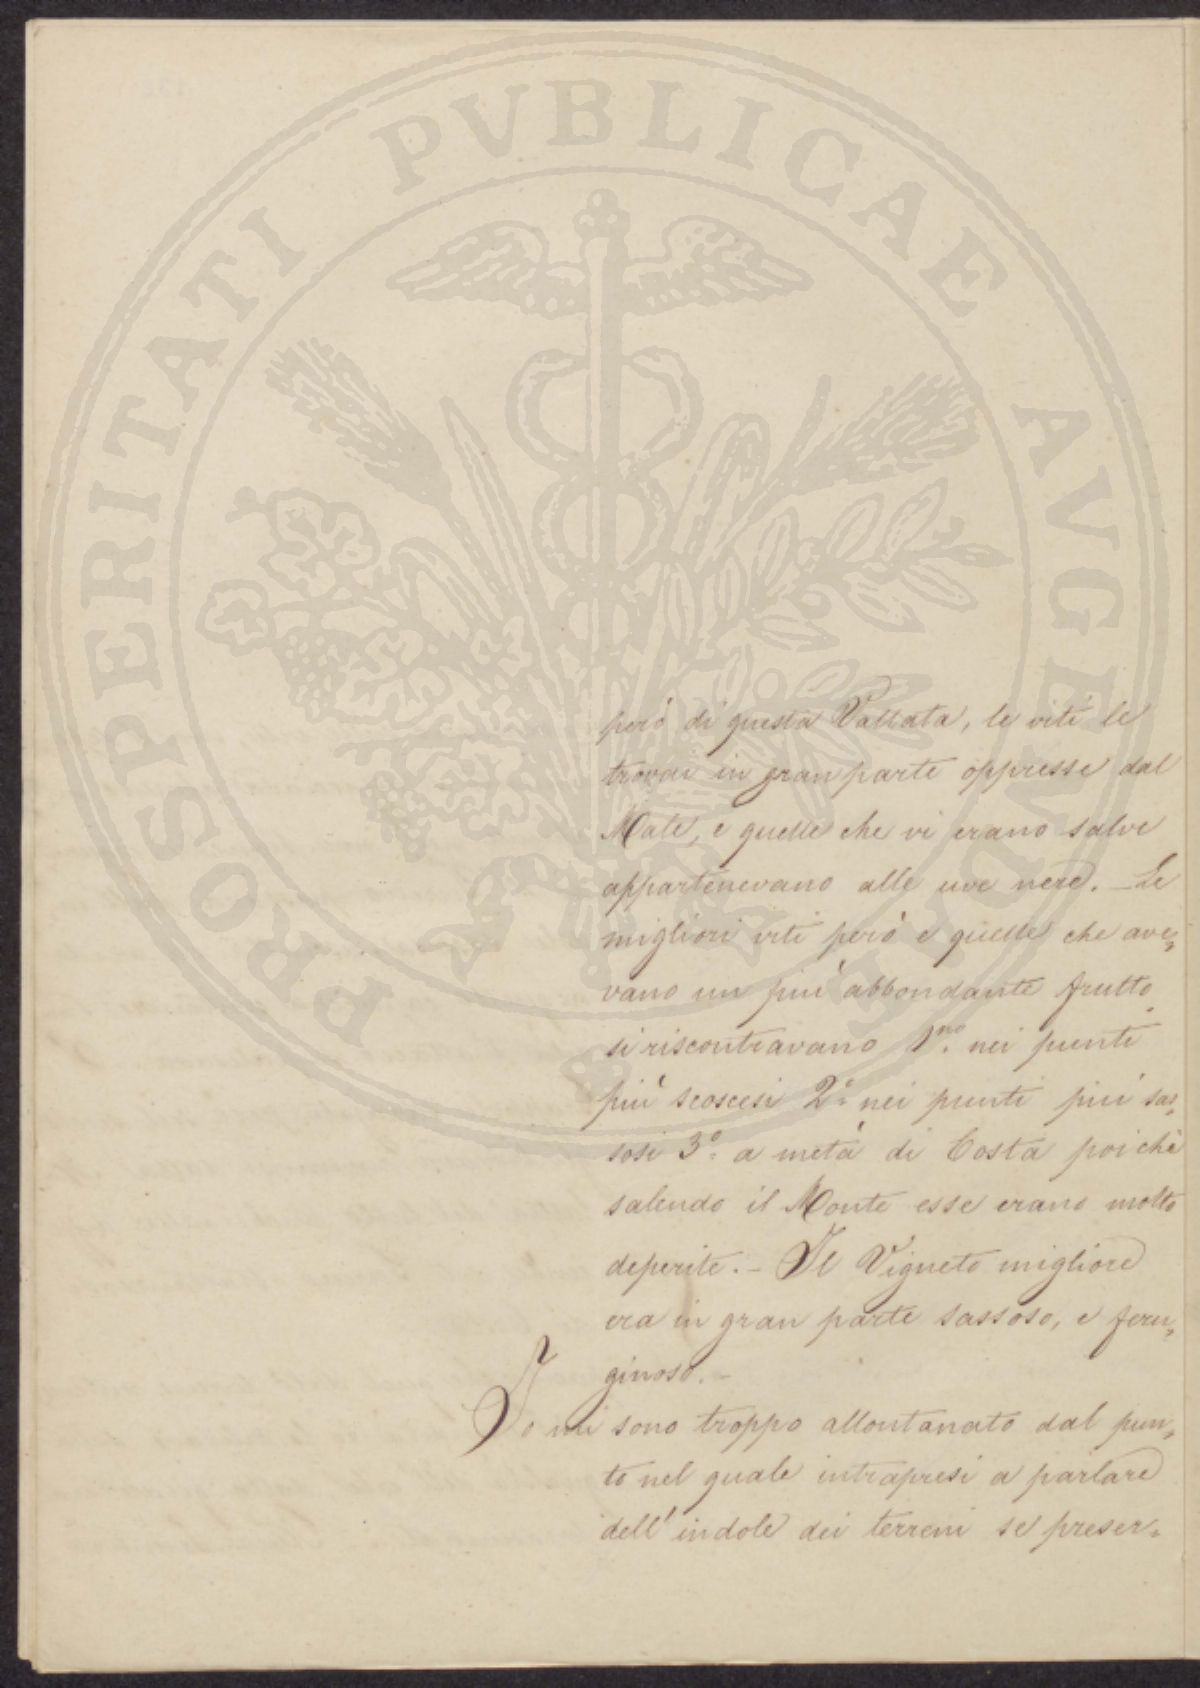 PROSPERITATI PVBLICAE AVGENDAE
però di questa Vallata, le viti le
trovai in gran parte oppresse dal
Male, e quelle che vi erano salve
appartenevano alle uve nere. – Le
migliori viti però e quelle che ave„
vano un più abbondante frutto
si riscontravano 1.mo nei punti
più scoscesi 2.o nei punti più sas„
sosi 3.o a metà di Costa poichè
salendo il Monte esse erano molto
deperite. – Il Vigneto migliore
era in gran parte sassoso, e feru„
ginoso. –
Io mi sono troppo allontanato dal pun„
to nel quale intrapresi a parlare
dell'indole dei terreni se preser„